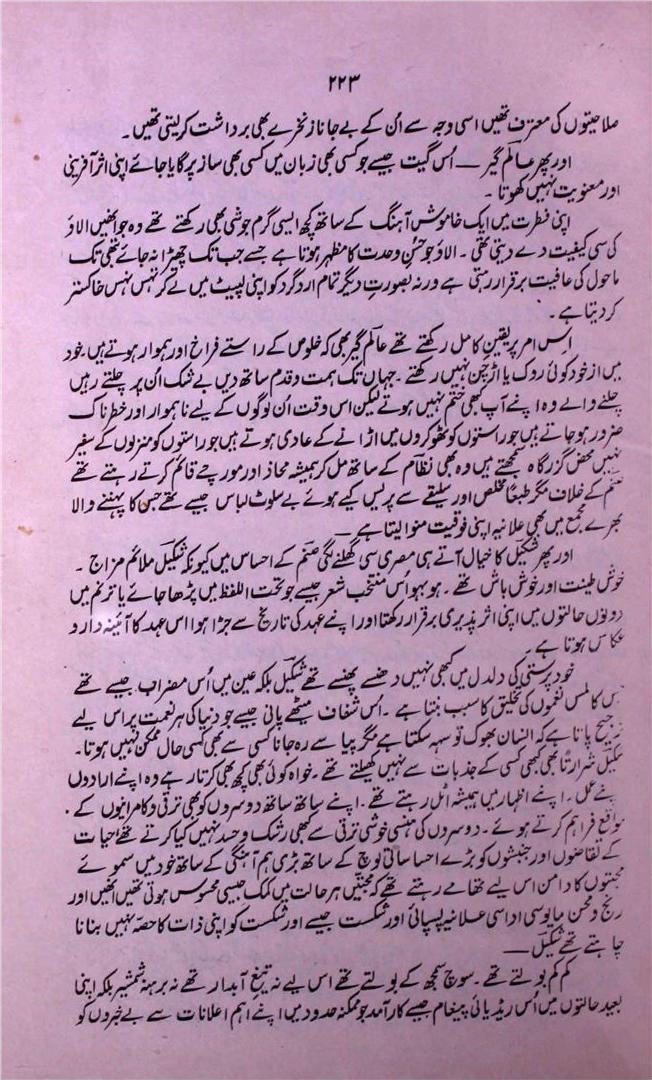 ۲۲۳
صلاحیتوں کی معترف تھیں اسی وجہ سے اُن کے بے جا ناز نخرے بھی برداشت کرلیتی تھیں۔
اور پھر عالم گیر — اُس گیت جیسے جو کسی بھی زبان میں کسی بھی ساز پر گایا جائے اپنی اثر آفرینی
اور معنویت نہیں کھوتا۔
اپنی فطرت میں ایک خاموش آہنگ کے ساتھ کچھ ایسی گرم جوشی بھی رکھتے تھے وہ جو انھیں الاؤ
کی سی کیفیت دے دیتی تھی۔ الاؤ جو حُسنِ وحدت کا مظہر ہوتا ہے جسے جب تک چھیڑا نہ جائے تبھی تک
ماحول کی عافیت برقرار رہتی ہے ورنہ بصورتِ دیگر تمام ارد گرد کو اپنی لپیٹ میں لے کر تہس نہس خاکستر
کر دیتا ہے۔
اس امر پر یقینِ کامل رکھتے تھے عالم گیر بھی کہ خلوص کے راستے فراخ اور ہموار ہوتے ہیں۔ خود
میں از خود کوئی روک یا اڑچن نہیں رکھتے۔ جہاں تک ہمت و قدم ساتھ دیں بے شک اُن پر چلتے رہیں
چلنے والے وہ اپنے آپ کبھی ختم نہیں ہوتے لیکن اس وقت اُن لوگوں کے لیے ناہموار اور خطرناک
ضرور ہو جاتے ہیں جو راستوں کو ٹھوکروں میں اڑانے کے عادی ہوتے ہیں جو راستوں کو منزلوں کے سفیر
نہیں محض گزرگاہ سمجھتے ہیں وہ بھی نظام کے ساتھ مل کر ہمیشہ محاذ اور مورچے قائم کرتے رہتے تھے
صنم کے خلاف مگر طبعاً مخلص اور سلیقے سے پریس کیے ہوئے بے سلوٹ لباس جیسے تھے جن کا پہننے والا
بھرے مجمع میں بھی علانیہ اپنی فوقیت منوا لیتا ہے —
اور پھر شکیل کا خیال آتے ہی مصری سی گھلنے لگی صنم کے احساس میں کیونکہ شکیل ملائم مزاج۔
خوش طینت اور خوش باش تھے۔ ہو بہو اس منتخب شعر جیسے جو تحت اللفظ میں پڑھا جائے یا ترنم میں
دونوں حالتوں میں اپنی اثر پذیری برقرار رکھتا اور اپنے عہد کی تاریخ سے جڑا ہوا اس عہد کا آئینہ دار و
عکاس ہوتا ہے۔
خود پرستی کی دلدل میں کبھی نہیں دھنسے پھنسے تھے شکیل بلکہ عین میں اُس مضراب جیسے تھے
جس کا لمس نغموں کی تخلیق کا سبب بنتا ہے۔ اُس شفاف میٹھے پانی جیسے جو دنیا کی ہر نعمت پر اس لیے
ترجیح پاتا ہے کہ انسان بھوک تو سہہ سکتا ہے مگر پیاسے رہ جانا کسی سے بھی کسی حال ممکن نہیں ہوتا۔
شکیل شرارتاً بھی کبھی کسی کے جذبات سے نہیں کھیلتے تھے۔ خواہ کوئی بھی کچھ بھی کرتا رہے وہ اپنے ارادوں
اپنے عمل۔ اپنے اظہار میں ہمیشہ اٹل رہتے تھے۔ اپنے ساتھ ساتھ دوسروں کو بھی ترقی و کامرانیوں کے
مواقع فراہم کرتے ہوئے۔ دوسروں کی ہنسی خوشی ترقی سے کبھی رشک و حسد نہیں کیا کرتے تھے حیات
کے تقاضوں اور جنبشوں کو بڑے احساساتی لوچ کے ساتھ بڑی ہم آہنگی کے ساتھ خود میں سموئے
محبتوں کا دامن اس لیے تھامے رہتے تھے کہ محبتیں ہر حالت میں کمک جیسی محسوس ہوتی تھیں انھیں اور
رنج و محن مایوسی اداسی علانیہ پسپائی اور شکست جیسے اور شکست کو اپنی ذات کا حصہ نہیں بنانا
چاہتے تھے شکیل —
کم کم بولتے تھے۔ سوچ سمجھ کے بولتے تھے اس لیے نہ تیغِ آبدار تھے نہ برہنہ شمشیر بلکہ اپنی
بعید حالتوں میں اُس ریڈیائی پیغام جیسے کارآمد جو ممکنہ حدود میں اپنے اہم اعلانات سے بے خبروں کو